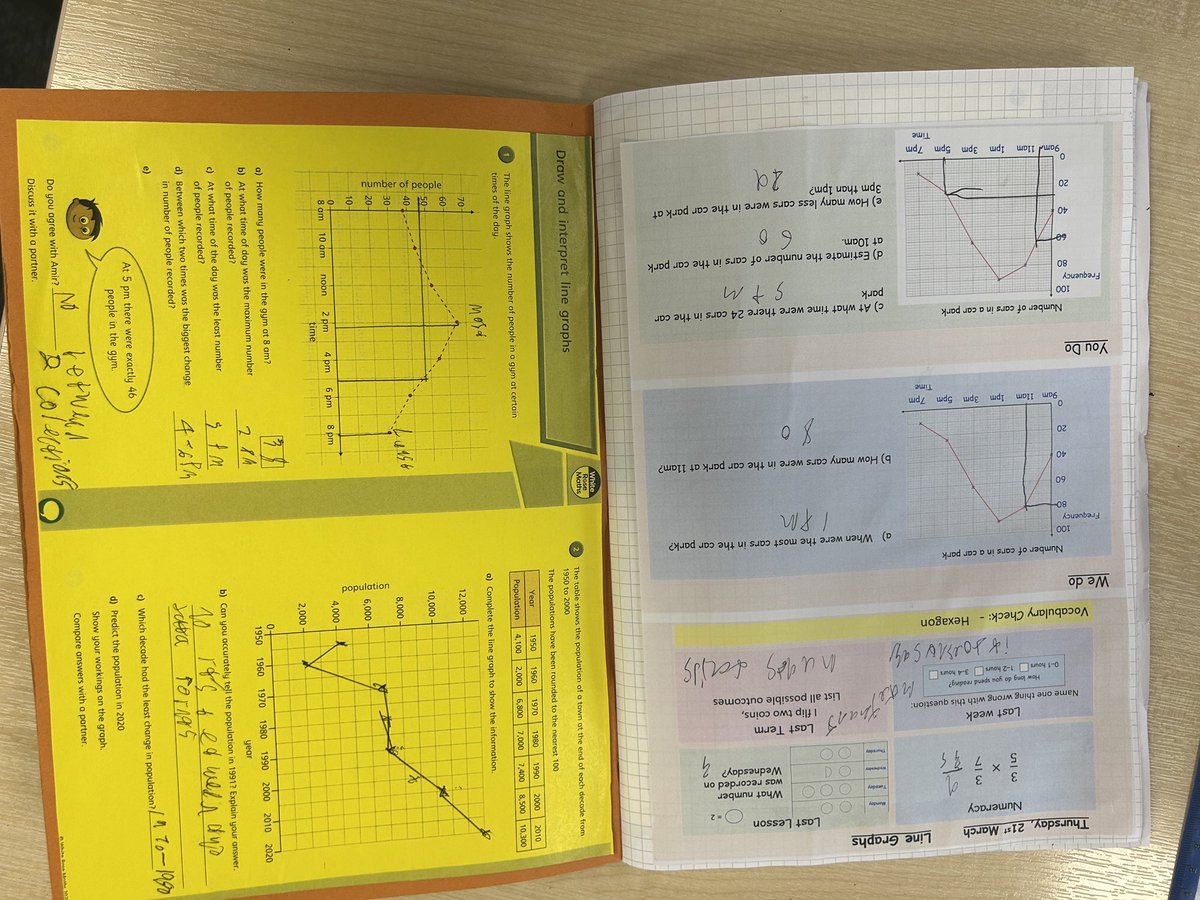 Thursday, 21st March
Line Graphs
Numeracy
3/5 × 3/7
Last Lesson
= 2
What number was recorded on Wednesday?
Monday
Tuesday
Wednesday
Thursday
Last week
Name one thing wrong with this question:
How long do you spend reading?
0–1 hours
1–2 hours
3-4 hours
Last Term
I flip two coins,
List all possible outcomes
Vocabulary Check: - Hexagon
We do
Number of cars in a car park
Frequency
100
80
60
40
20
0
9am 11am 1pm 3pm 5pm 7pm
Time
a) When were the most cars in the car park?
b) How many cars were in the car park at 11am?
80
You Do
Number of cars in a car park
Frequency
100
80
60
40
20
0
9am 11am 1pm 3pm 5pm 7pm
Time
c) At what time were there 24 cars in the car
park
d) Estimate the number of cars in the car park
at 10am.
60
e) How many less cars were in the car park at
3pm than 1pm?
Draw and interpret line graphs
White
Rose
Maths
1 The line graph shows the number of people in a gym at certain
times of the day.
number of people
70
60
50
40
30
20
10
0
8 am 10 am noon 2 pm 4 pm 6 pm 8 pm
time
most
a) How many people were in the gym at 8 am?
b) At what time of day was the maximum number
of people recorded?
c) At what time of the day was the least number
of people recorded?
d) Between which two times was the biggest change
in number of people recorded?
e)
At 5 pm there were exactly 46
people in the gym.
Do you agree with Amir?
Discuss it with a partner.
2 The table shows the population of a town at the end of each decade from
1950 to 2000
The populations have been rounded to the nearest 100
Year 1950 1960 1970 1980 1990 2000 2010
Population 4,100 2,000 6,800 7,000 7,400 8,500 10,300
a) Complete the line graph to show the information.
population
12,000
10,000
8,000
6,000
4,000
2,000
0
1950 1960 1970 1980 1990 2000 2010 2020
year
b) Can you accurately tell the population in 1991? Explain your answer.
c) Which decade had the least change in population?
d) Predict the population in 2020
Show your workings on the graph.
Compare answers with a partner.